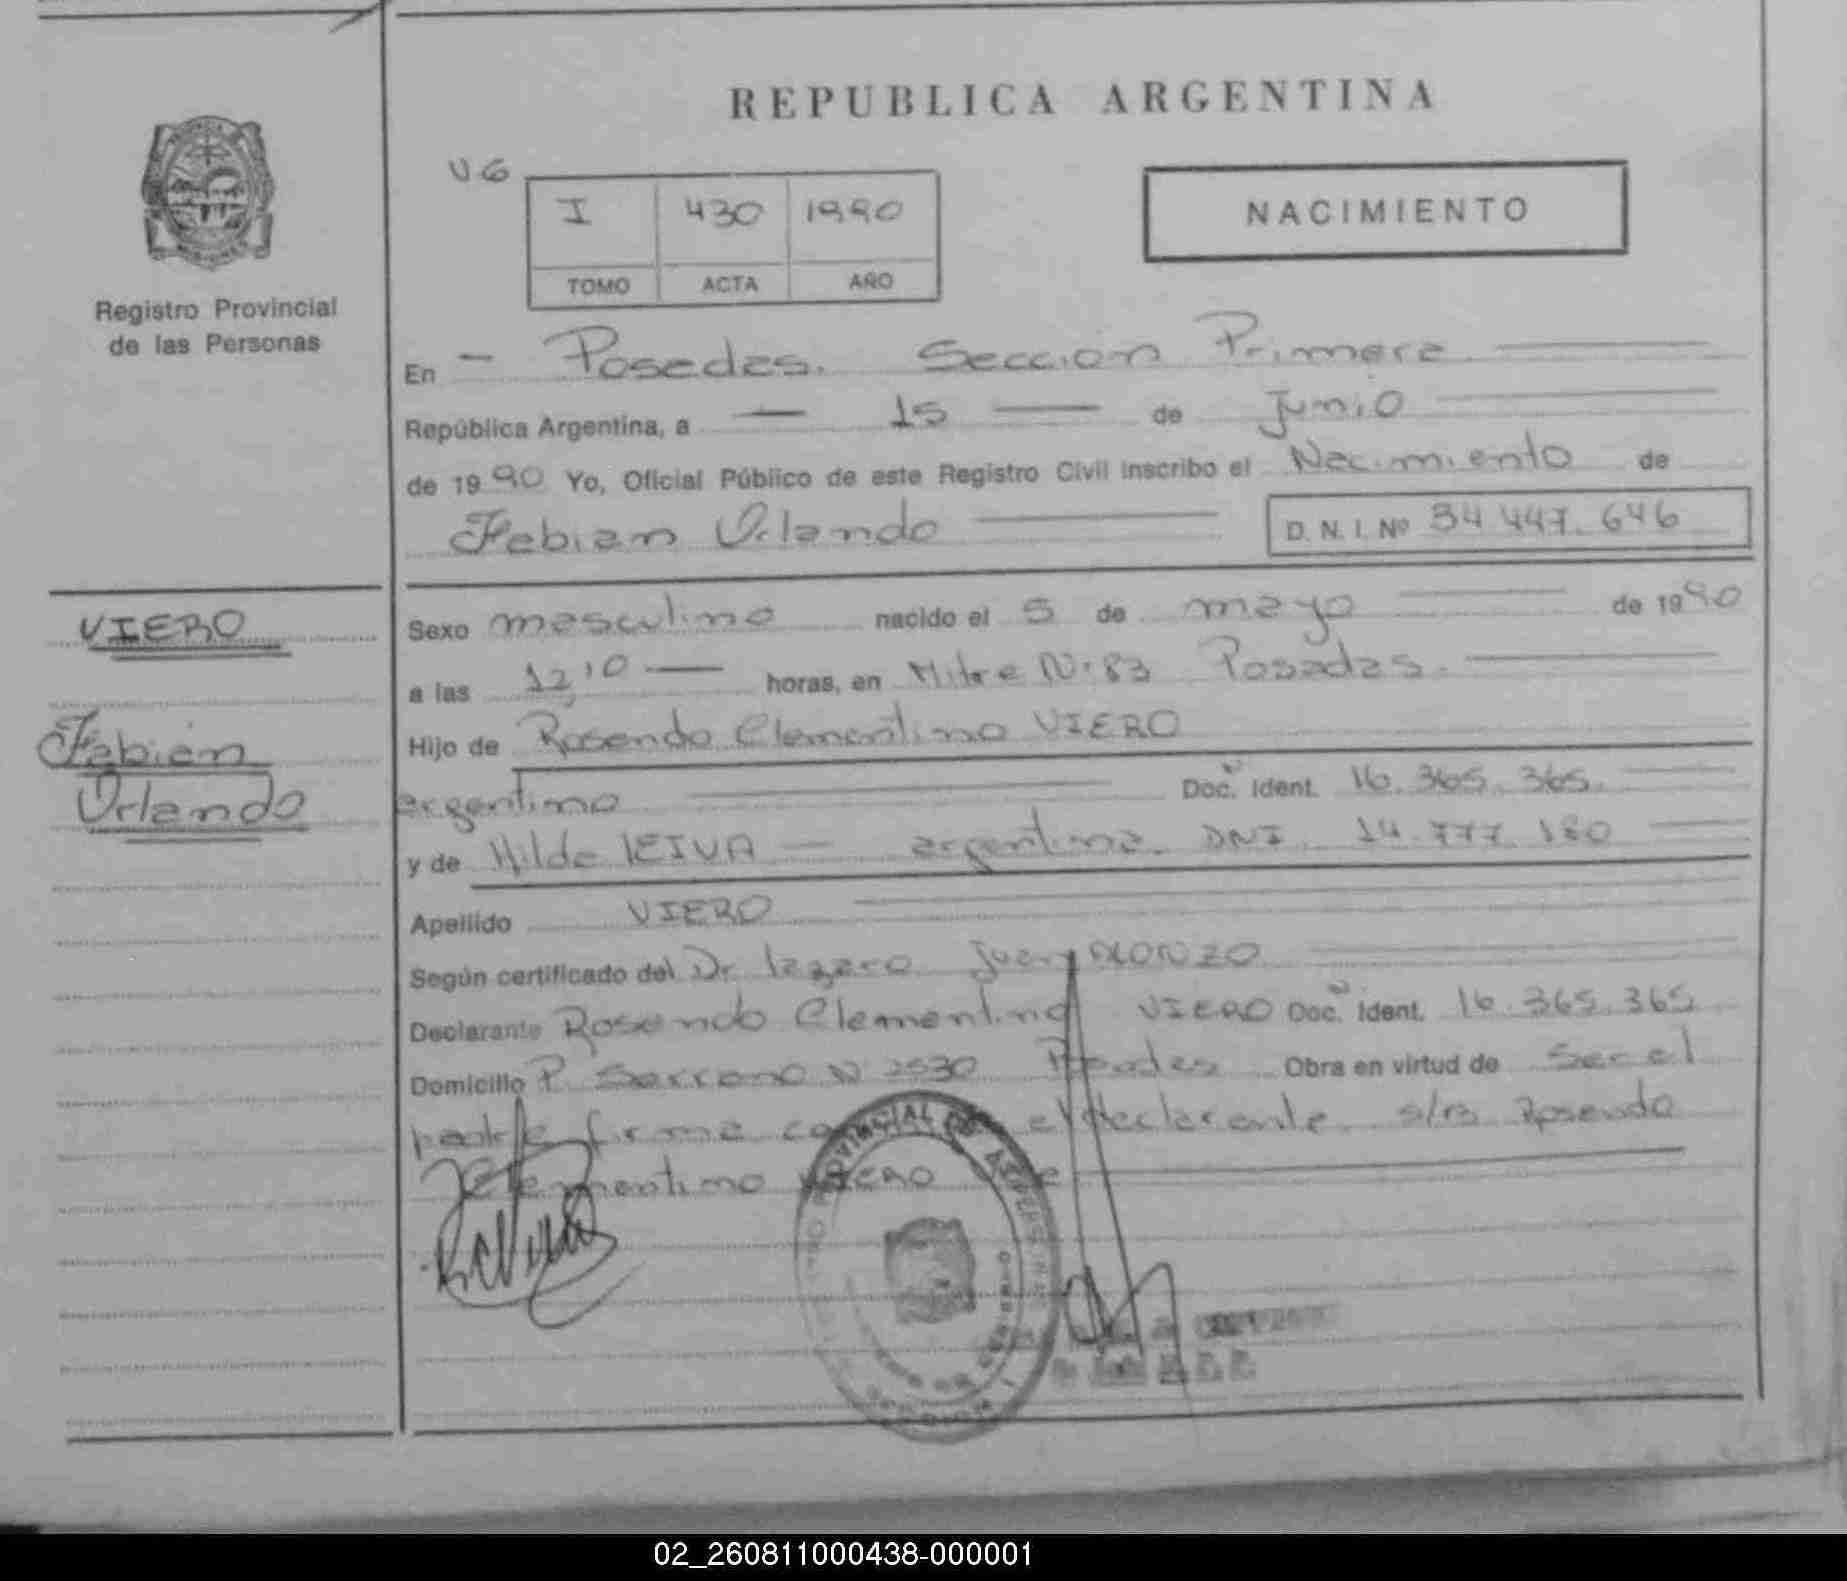 REPUBLICA ARGENTINA
V6
I 430 1990
TOMO ACTA AÑO
NACIMIENTO
Registro Provincial
de las Personas
En - Posadas. Sección Primera
República Argentina, a - 15 - de Junio
de 1990 Yo, Oficial Público de este Registro Civil inscribo el Nacimiento de
Fabian Orlando D. N. I. Nº 34 447.646
VIERO
Fabián
Orlando
Sexo masculino nacido el 5 de mayo de 1990
a las 12,10 horas, en Mitre Nº 83 Posadas.
Hijo de Rosendo Clementino VIERO
argentino Doc. Ident. 16.365.365.
y de Hilda LEIVA - argentina. DNI. 14.777.180
Apellido VIERO
Según certificado del Dr Lazaro Juan ALONZO
Declarante Rosendo Clementino VIERO Doc. Ident. 16.365.365
Domicilio P. Serrano Nº 2530 Posadas Obra en virtud de Ser el
padre firma el declarante s/rs Rosendo
Clementino VIERO
PROVINCIAL DE
02_260811000438-000001